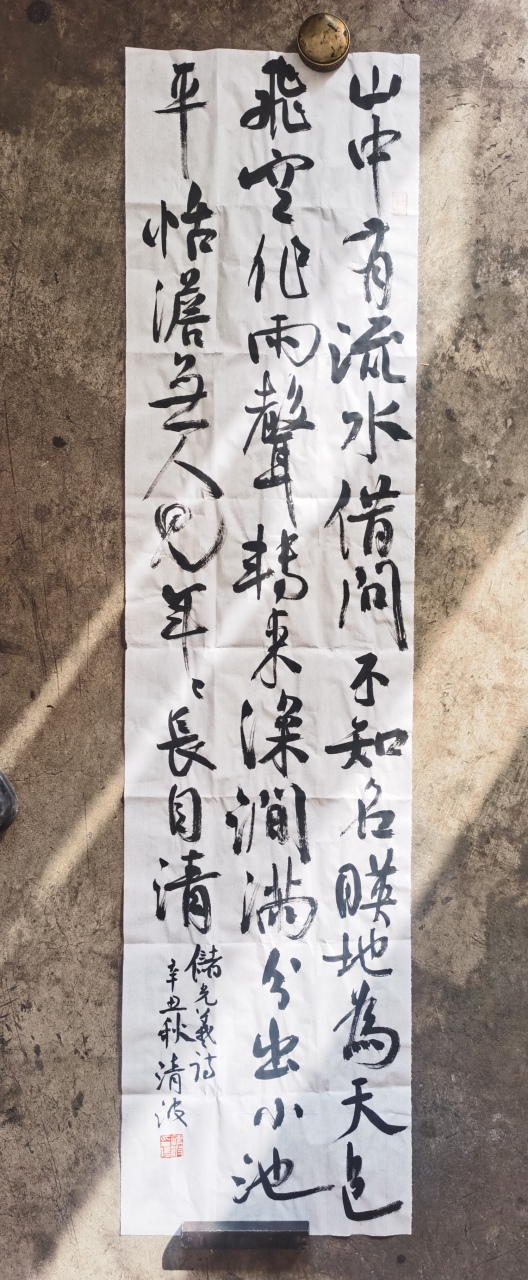 山中有流水借問不知名暎地為天色
飛空作雨聲轉來深澗滿分出小池
平恬澹無人見年〻長自清
儲光羲詩
辛丑秋清波